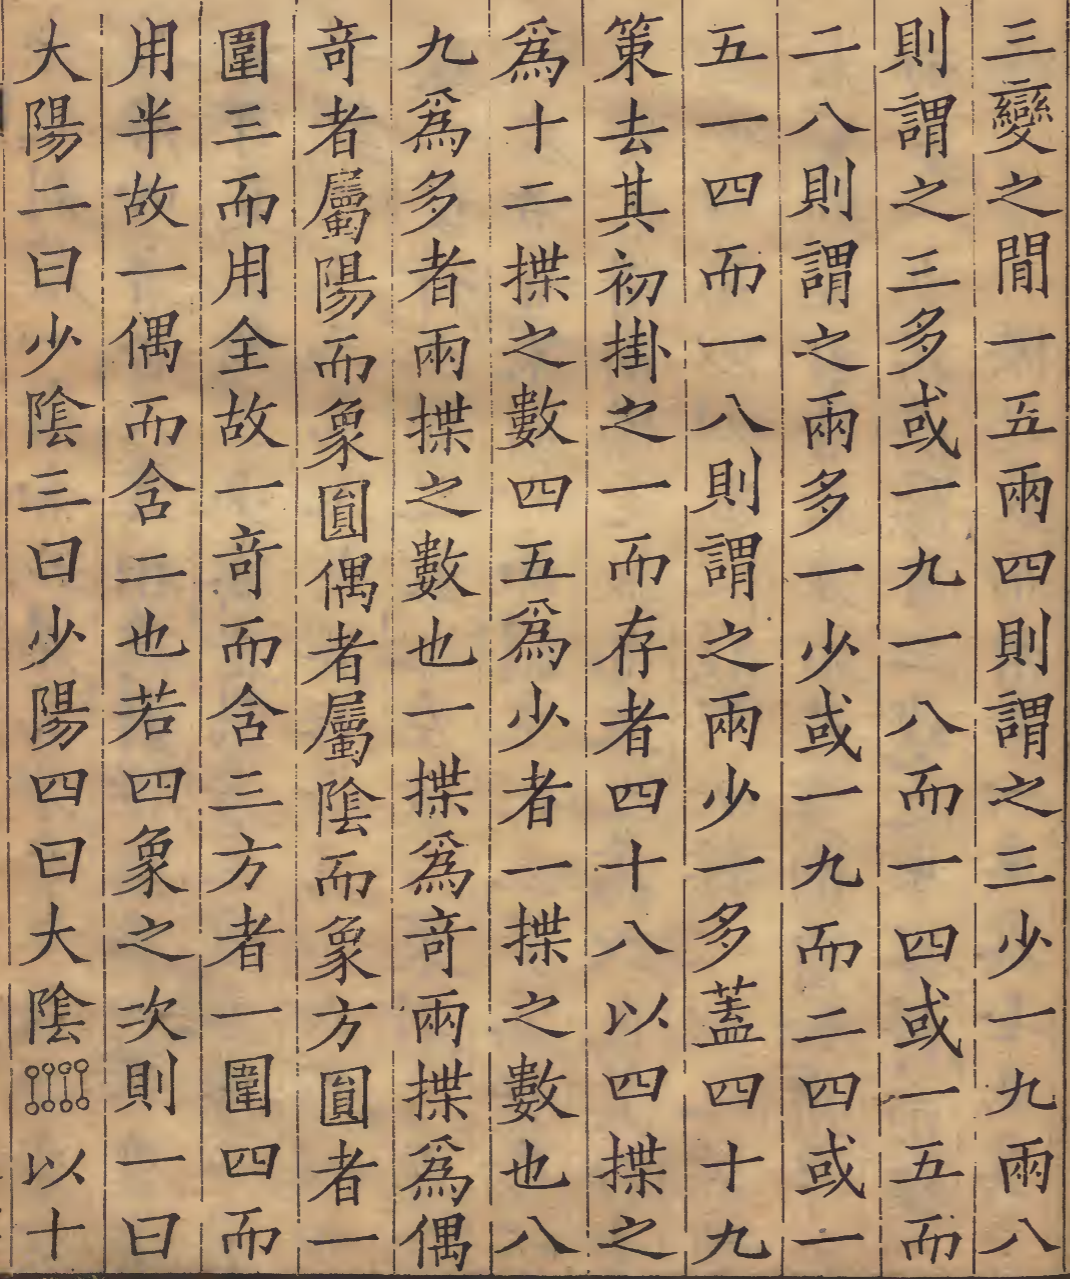 三變之間一五兩四則謂之三少一九兩八
則謂之三多或一九一八而一四或一五而
二八則謂之兩多一少或一九而二四或一
五一四而一八則謂之兩少一多蓋四十九
策去其初掛之一而存者四十八以四揲之
爲十二揲之數四五爲少者一揲之數也八
九爲多者兩揲之數也一揲爲竒兩揲爲偶
竒者屬陽而象圓偶者屬隂而象方圓者一
圍三而用全故一竒而含三方者一圍四而
用半故一偶而含二也若四象之次則一曰
大陽二曰少隂三曰少陽四曰大隂以十